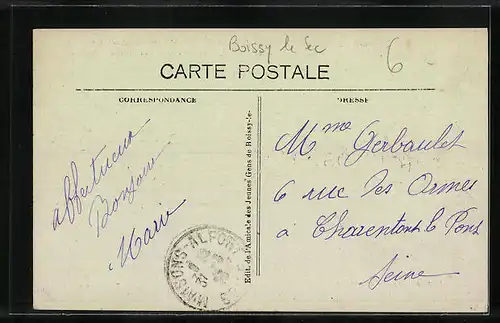 Boissy le Sec
6
CARTE POSTALE
CORRESPONDANCE
DRESSE
affectueux
Bonjour
Marie
Edit. de l'Amicale des Jeunes Gens de Boissy-le-
Mme Gerbault
6 rue des Ormes
à Charenton le Pont
Seine
MAISONS-ALFORT